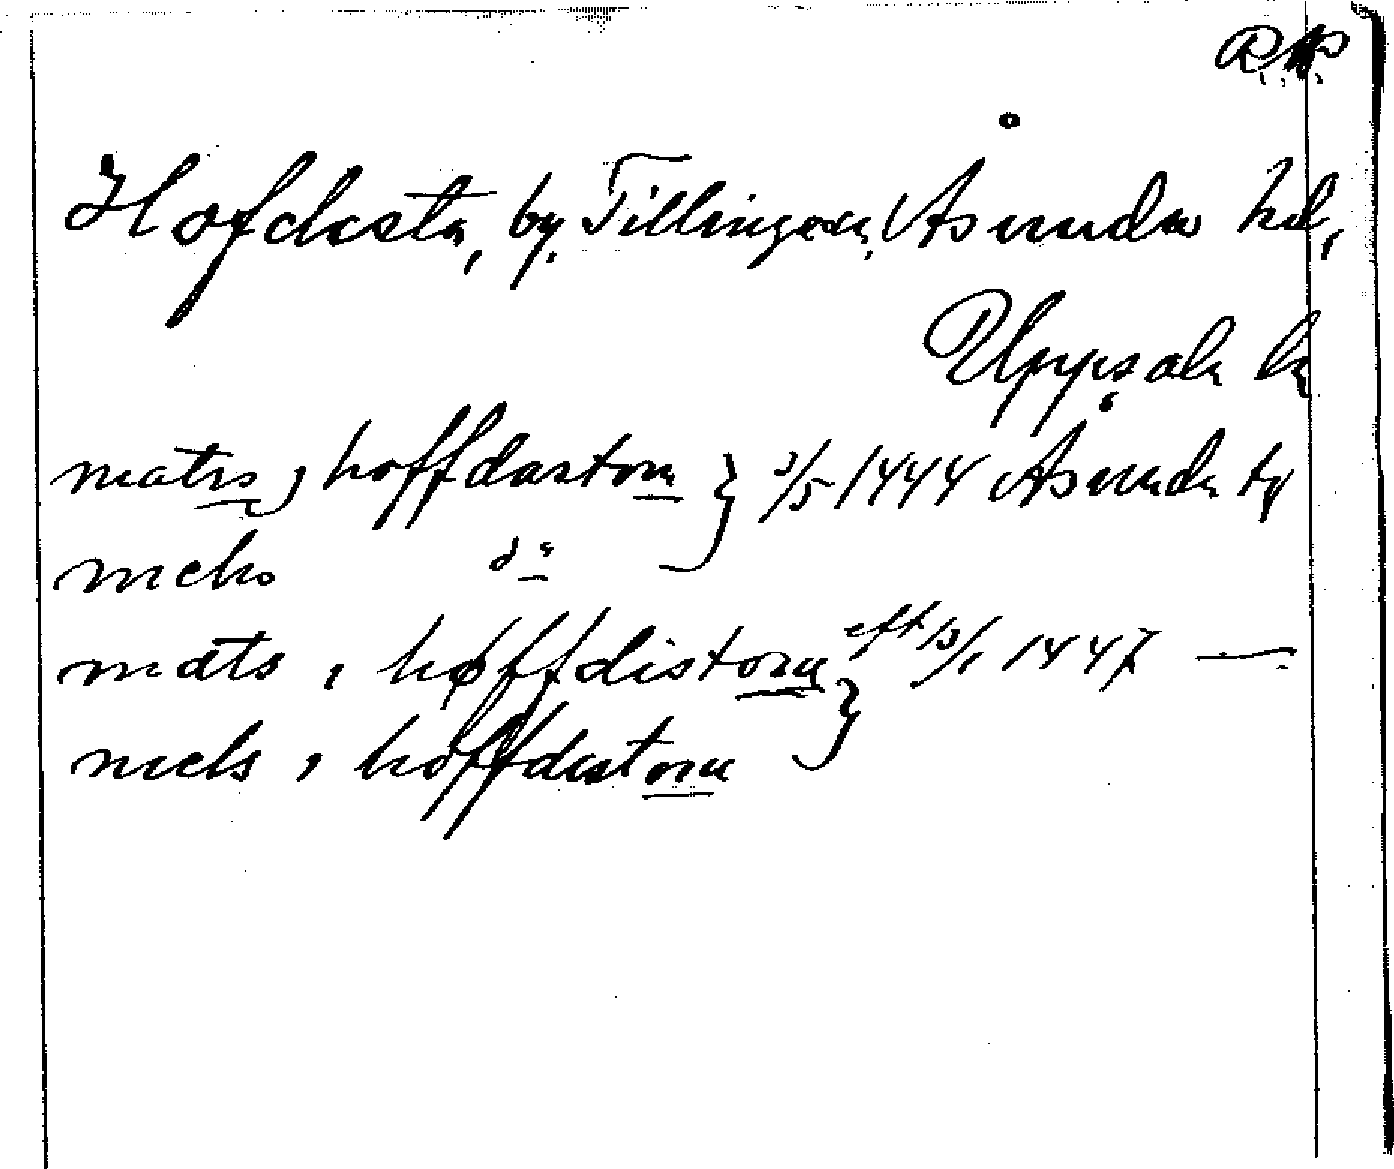 Hofdesta, by. Tillinge sn, Åsunda hd,
Uppsala ln
matis, i hoffdastom } 3/5 1444 Åsunda tg
nielis do
mats, i hoffdistom } eft 13/1 1447 —
niels, i hoffdestom